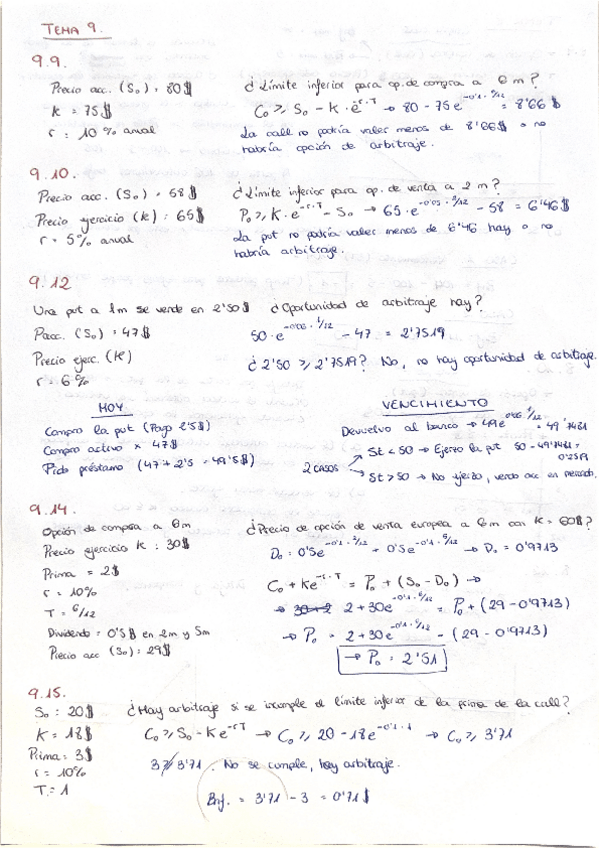 TEMA 9.
9.9.
Precio acc. (S₀) = 80$
K = 75$
r = 10% anual
¿Límite inferior para op. de compra a 6 m?
C₀ ≥ S₀ - K · e^-r·T → 80 - 75e^-0'1 · 6/12 = 8'66$
La call no podría valer menos de 8'66$ o no
habría opción de arbitraje.
9.10.
Precio acc. (S₀) = 58$
Precio ejercicio (K) = 65$
r = 5% anual
¿Límite inferior para op. de venta a 2 m?
P₀ ≥ K · e^-r·T - S₀ → 65 · e^-0'05 · 2/12 - 58 = 6'46$
La put no podría valer menos de 6'46 hay o no
habría arbitraje.
9.12
Una put a 1m se vende en 2'50$ ¿Oportunidad de arbitraje hay?
Pacc. (S₀) = 47$
Precio ejerc. (K)
r = 6%
50 · e^-0'06 · 1/12 - 47 = 2'7519
¿2'50 ≥ 2'7519? No, no hay oportunidad de arbitraje.
HOY
Compro la put (Pago 2'5$)
Compro activo x 47$
Pido préstamo (47 + 2'5 = 49'5$)
VENCIMIENTO
Devuelvo al banco → 49e^0'06 · 1/12 = 49'7481
2 casos
St < 50 → Ejerzo la put 50 - 49'7481 = 0'2519
St > 50 → No ejerzo, vendo acc en mercado.
9.14.
Opción de compra a 6m
Precio ejercicio K = 30$
Prima = 2$
r = 10%
T = 6/12
Dividendo = 0'5$ en 2m y 5m
Precio acc (S₀) = 29$
¿Precio de opción de venta europea a 6m con K = 60$?
D₀ = 0'5e^-0'1 · 2/12 + 0'5e^-0'1 · 5/12 → D₀ = 0'9713
C₀ + Ke^-r·T = P₀ + (S₀ - D₀) →
→ 30 + 2 2 + 30e^-0'1 · 6/12 = P₀ + (29 - 0'9713)
→ P₀ = 2 + 30e^-0'1 · 6/12 - (29 - 0'9713)
→ P₀ = 2'51
9.15.
S₀ = 20$
K = 18$
Prima = 3$
r = 10%
T = 1
¿Hay arbitraje si se incumple el límite inferior de la prima de la call?
C₀ ≥ S₀ - Ke^-rT → C₀ ≥ 20 - 18e^-0'1 · 1 → C₀ ≥ 3'71
3 ≱ 3'71. No se cumple, hay arbitraje.
Bnf. = 3'71 - 3 = 0'71$